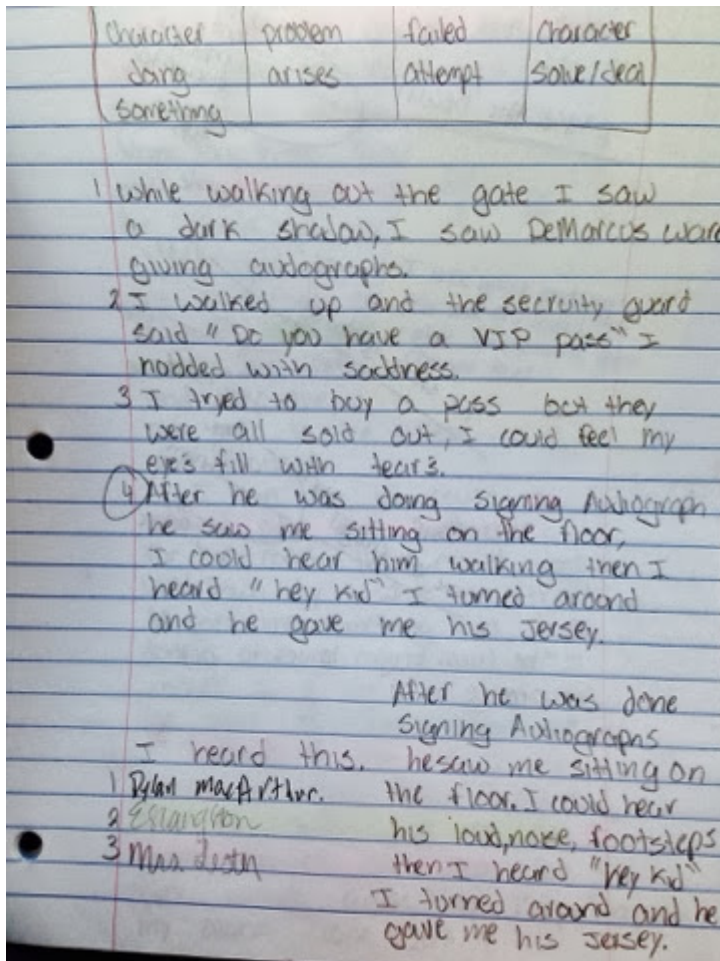 character problem failed character
doing arises attempt solve/deal
something
1 While walking out the gate I saw
a dark shadow, I saw DeMarcus Ware
giving audographs.
2 I walked up and the secruity guard
said "Do you have a VIP pass" I
nodded with saddness.
3 I tryed to buy a pass but they
were all sold out, I could feel my
eye's fill with tear's.
4 After he was doing signing Authograph
he saw me sitting on the floor,
I coold hear him walking then I
heard "hey kid" I turned around
and he gave me his Jersey.
After he was done
signing Authographs
I heard this. he saw me sitting on
1 Dylan macArthur. the floor. I could hear
2 his loud, noise, footsteps
3 then I heard "hey kid"
I turned around and he
gave me his Jersey.